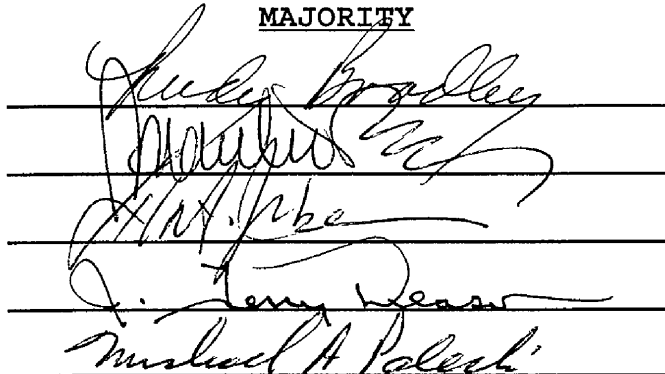 MAJORITY
Rudy Bradley
A. Jaber
J. Terry Deason
Michael A Palecki